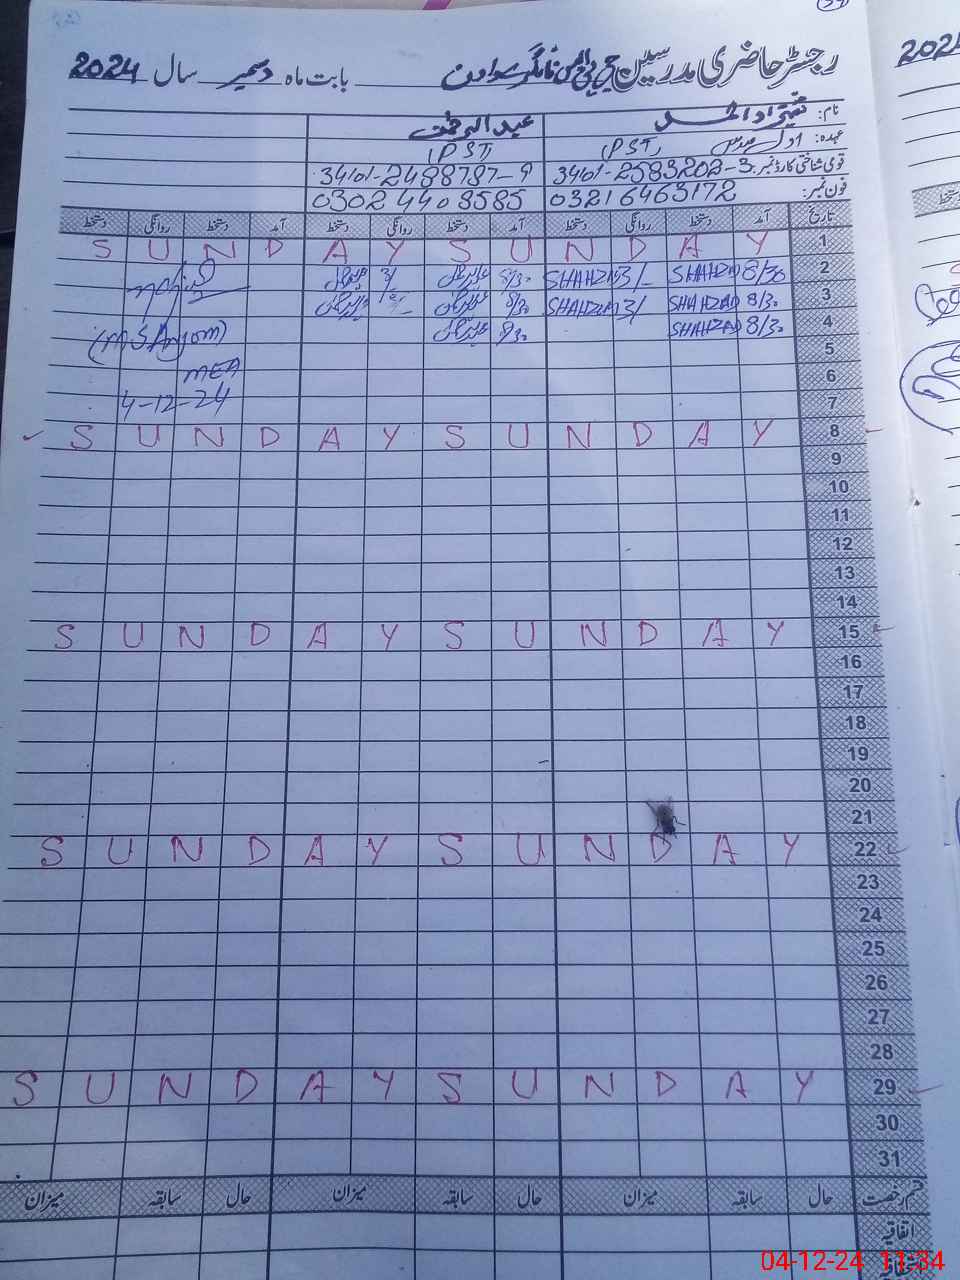 رجسٹر حاضری مدرسین جی پی ایس بابت ماہ دسمبر سال 2024
نام: شہزاد احمد عبدالرحمن
عہدہ: اول مدرس (PST) (PST)
قومی شناختی کارڈ نمبر: 34101-2583202-3 34101-2488787-9
فون نمبر: 03216463172 03024408585
تاریخ آمد دستخط روانگی دستخط آمد دستخط روانگی دستخط آمد دستخط روانگی دستخط
S U N D A Y S U N D A Y 1
SHAHZAD 3/- SHAHZAD 8/30 2
SHAHZAD 3/- SHAHZAD 8/30 3
(M S Anjom) SHAHZAD 8/30 4
5
MEA 6
4-12-24 7
S U N D A Y S U N D A Y 8
9
10
11
12
13
14
S U N D A Y S U N D A Y 15
16
17
18
19
20
21
S U N D A Y S U N D A Y 22
23
24
25
26
27
28
S U N D A Y S U N D A Y 29
30
31
قسم رخصت حال سابقہ میزان حال سابقہ میزان حال سابقہ میزان
اتفاقیہ
04-12-24 11:34